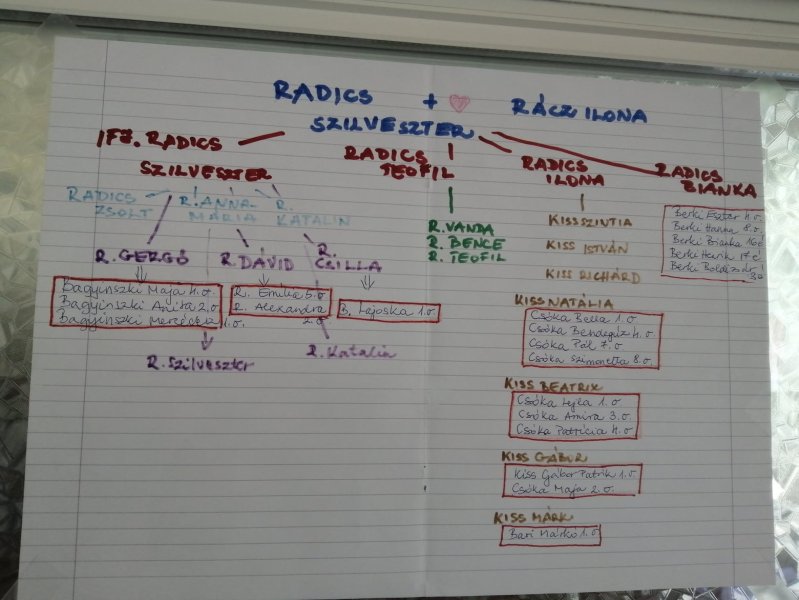 RADICS + RÁCZ ILONA
SZILVESZTER
IFJ. RADICS
SZILVESZTER
RADICS
TEOFIL
RADICS
ILONA
RADICS
BIANKA
RADICS
ZSOLT
R. ANNA-
MÁRIA
R.
KATALIN
R. GERGŐ
R. DÁVID
R.
CSILLA
Bagyinszki Maja H.o.
Bagyinszki Anita 2.o
Bagyinszki 1.o.
R. Emília 5.o
R. Alexandra
2.o
Lajoska 1.o
R. Szilveszter
R. Katalin
R. VANDA
R. BENCE
R. TEOFIL
KISS SZINTIA
KISS ISTVÁN
KISS RICHÁRD
KISS NATÁLIA
Csóka Bella 1.o
Csóka Bendegúz H.o.
Csóka Pál 7.o
Csóka Szimonetta 8.o.
KISS BEATRIX
Csóka Lejla 1.o.
Csóka Amira 3.o.
Csóka Patrícia H.o.
KISS GÁBOR
Kiss Gábor Patrik 1.o.
Csóka Maja 2.o.
KISS MÁRK
Bari Márkó 1.o
Berki Eszter H.o.
Berki Hanna 8.o.
Berki Bianka 16é
Berki 17é
Berki Boldizsár